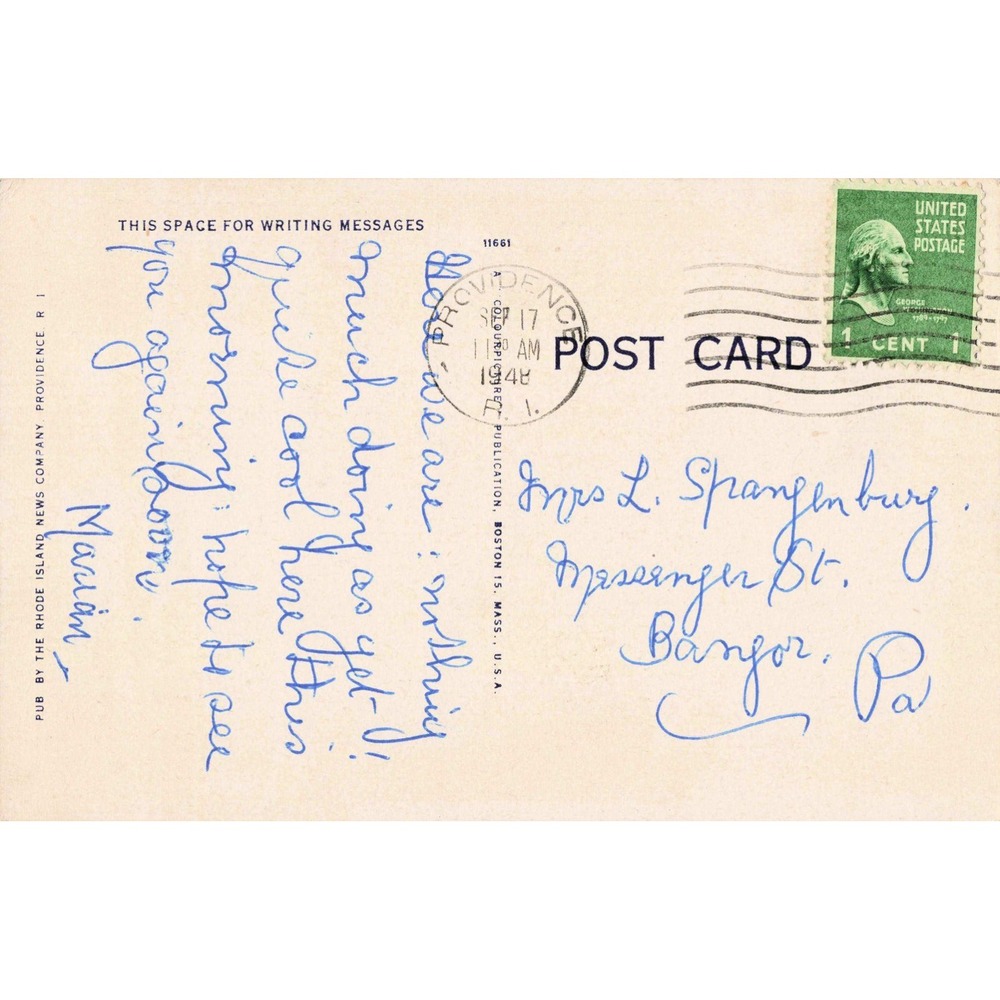 THIS SPACE FOR WRITING MESSAGES
Here we are: nothing
much doing as yet!
quite cool here this
morning: hope to see
you again soon.
Marian
PUB BY THE RHODE ISLAND NEWS COMPANY, PROVIDENCE, R I
11661
A COLOURPICTURE PUBLICATION, BOSTON 15, MASS., U.S.A.
PROVIDENCE
SEP 17
AM
1948
R. I.
POST CARD
UNITED
STATES
POSTAGE
GEORGE
WASHINGTON
1789-1797
1 CENT 1
Mrs L. Spangenburg.
Messenger St.
Bangor.
Pa